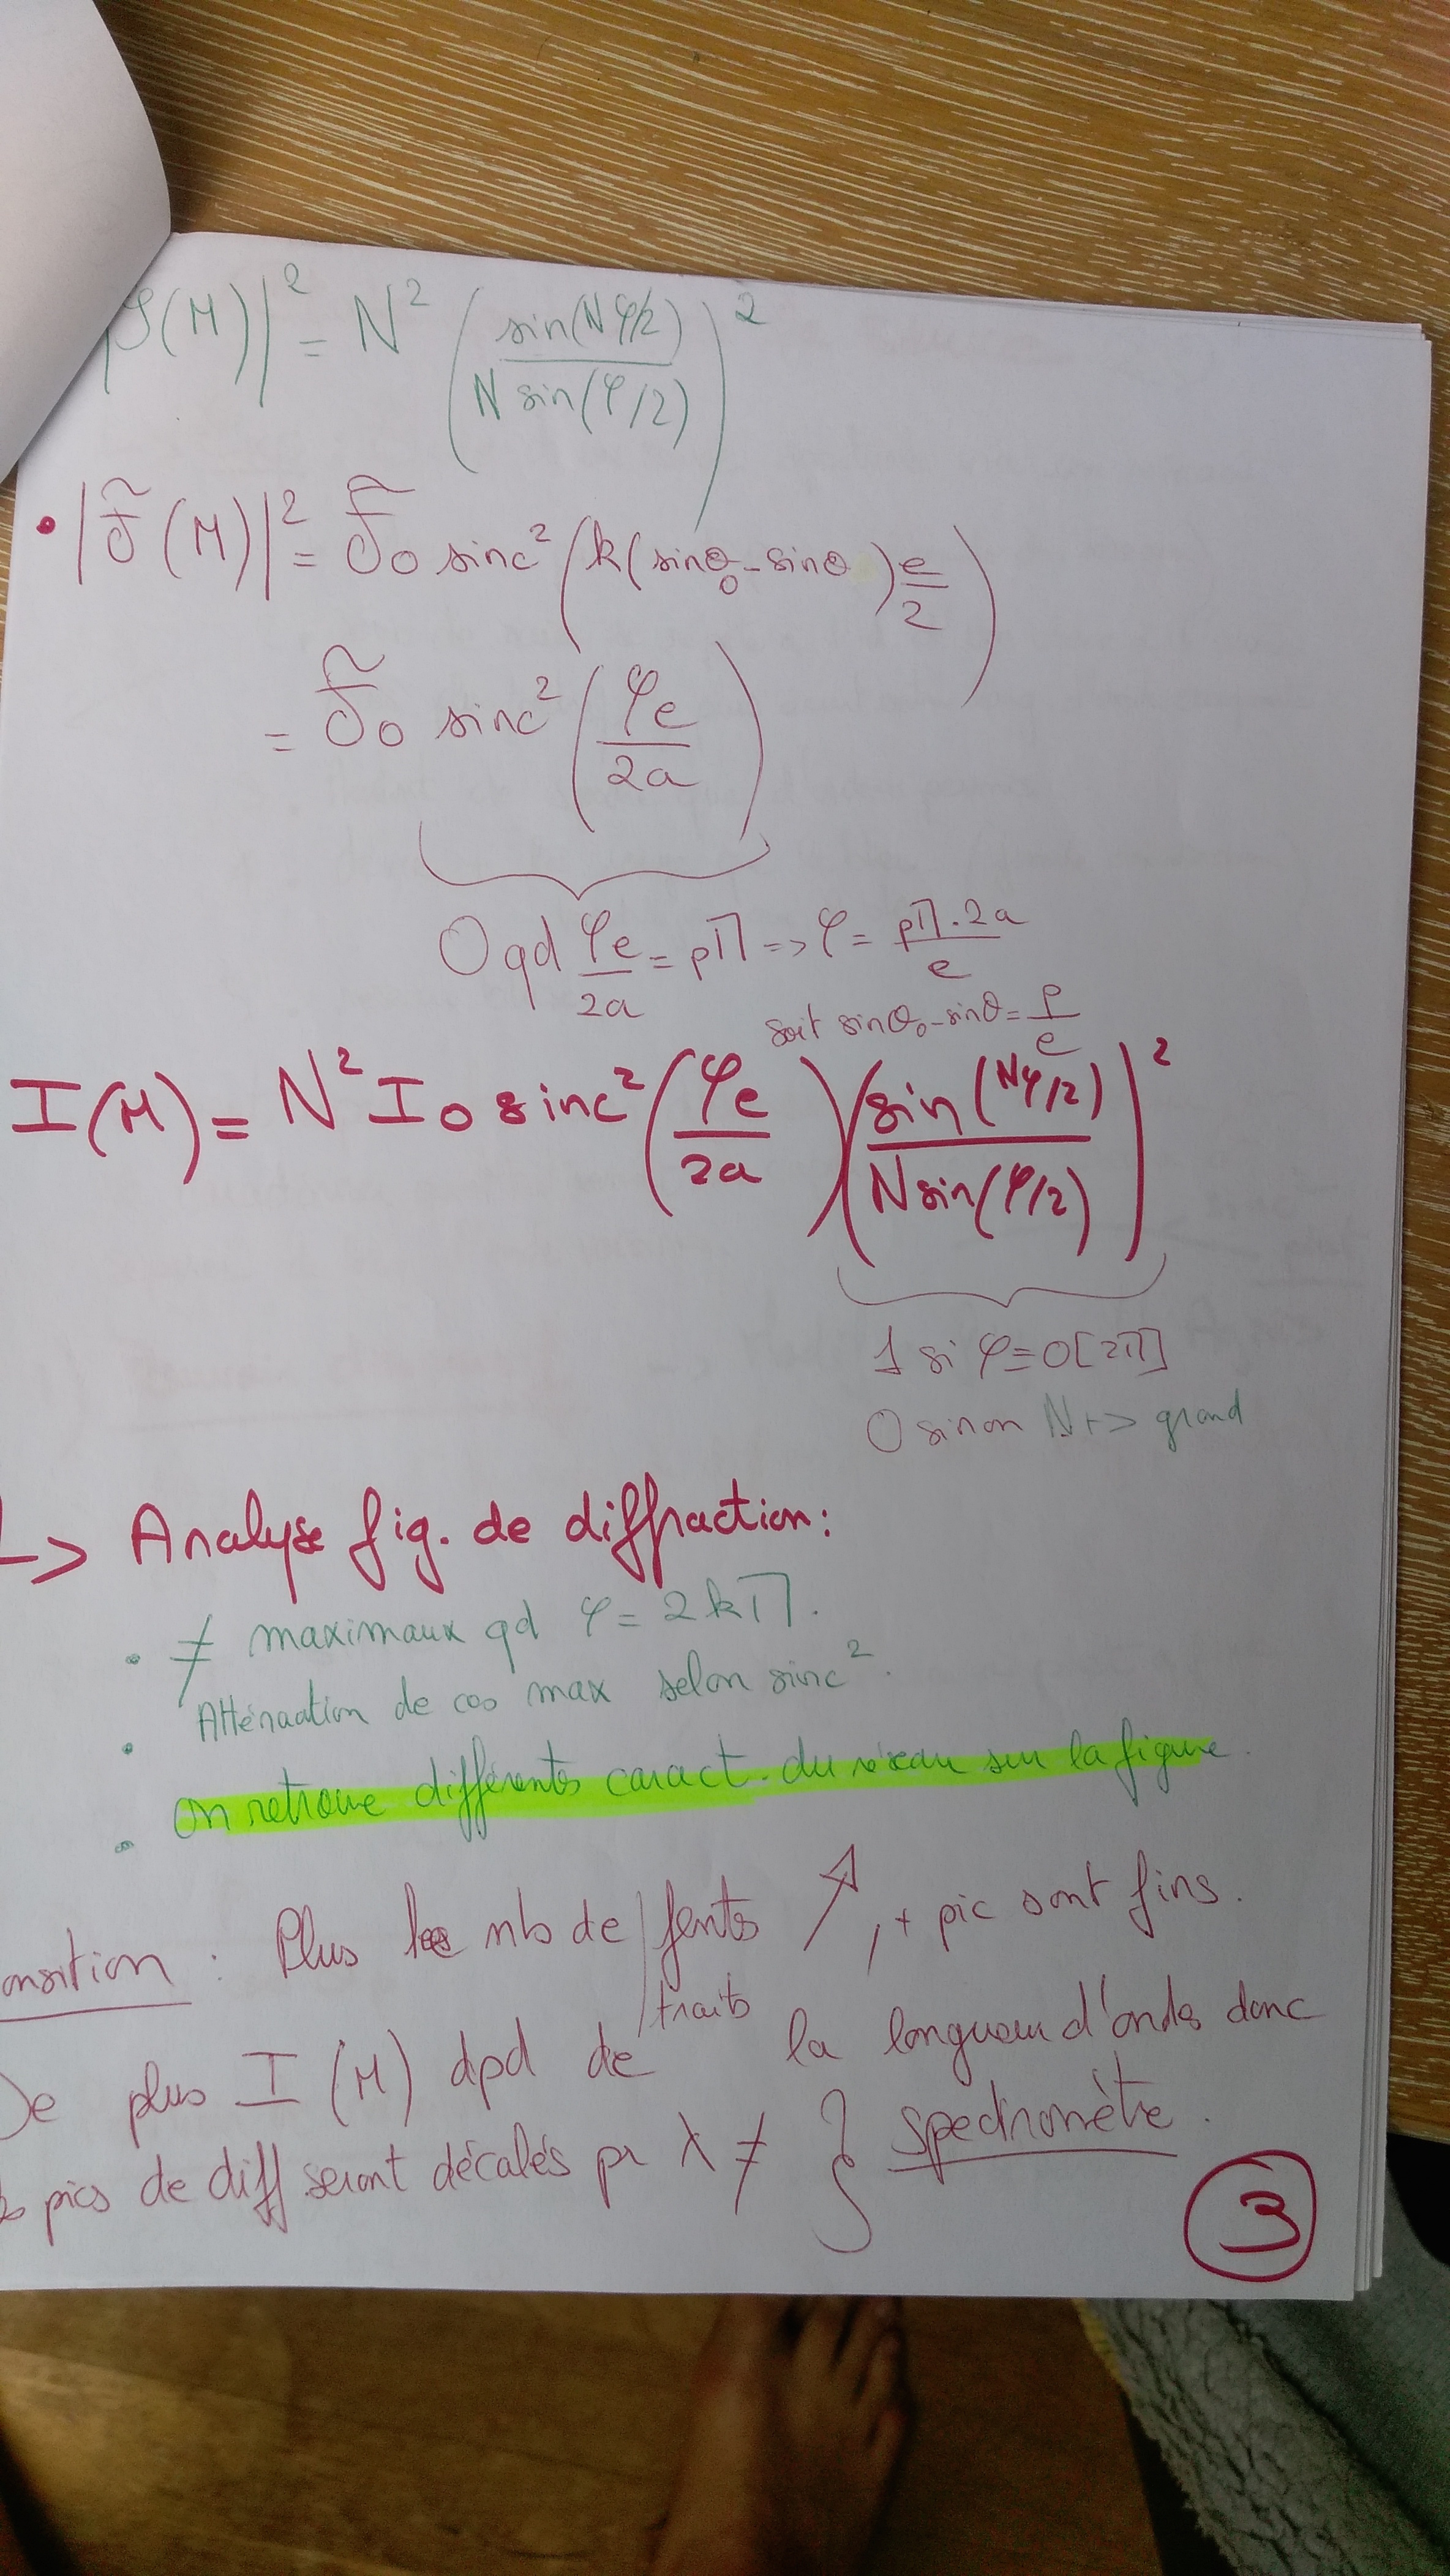 𝒮(M)|² = N² ( sin(Nφ/2) / N sin(φ/2) )²
• |𝒥̃(M)|² = 𝒥̃₀ sinc² ( k(sinθ₀ - sinθ) e/2 )
= 𝒥̃₀ sinc² ( φe / 2a )
0 qd φe/2a = pΠ => φ = pΠ.2a / e
soit sinθ₀ - sinθ = p/e
I(M) = N² I₀ sinc² ( φe / 2a ) ( sin(Nφ/2) / N sin(φ/2) )²
1 si φ = 0[2Π]
0 sinon N ↦ grand
↳ Analyse fig. de diffraction :
• ≠ maximaux qd φ = 2kΠ.
• Atténuation de ces max selon sinc².
• on retrouve différentes caract. du réseau sur la figure.
onsition : Plus le nb de / fentes ↗, + pic sont fins.
/ traits
De plus I(M) dpd de la longueur d'onde donc
pics de diff seront décalés pr λ ≠ } spectromètre.
3